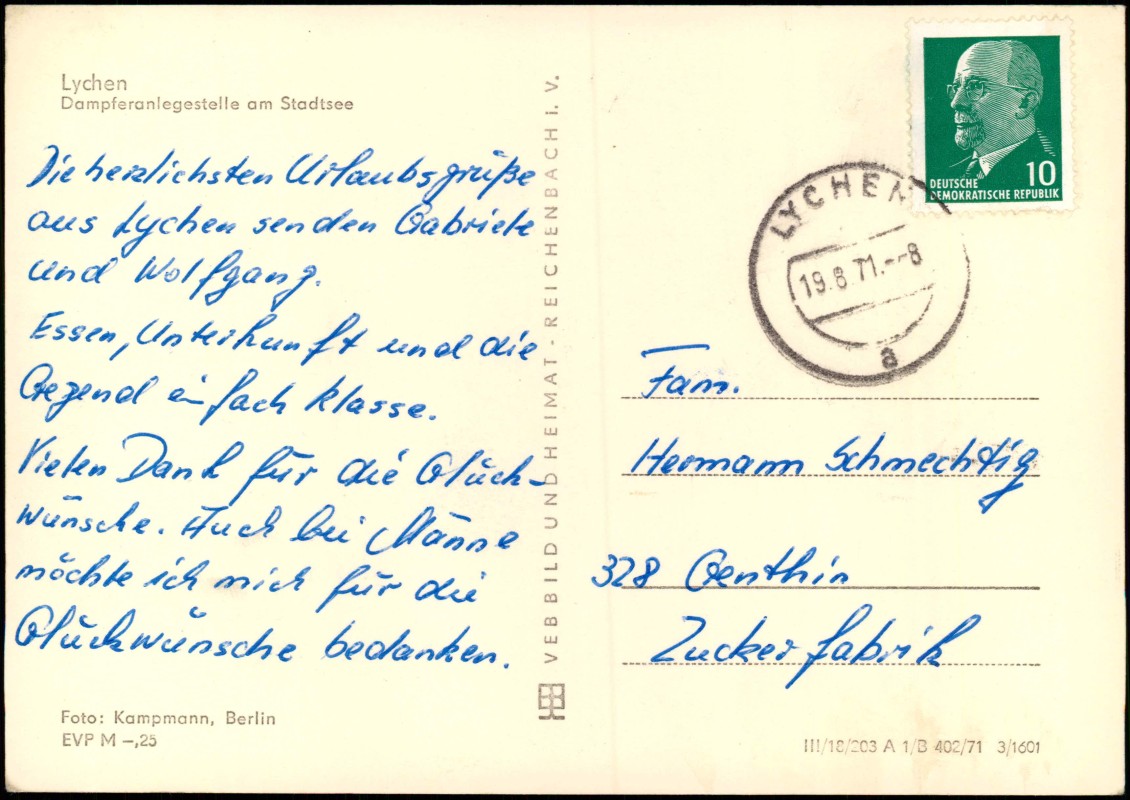 Lychen
Dampferanlegestelle am Stadtsee
Die herzlichsten Urlaubsgrüße
aus Lychen senden Gabriele
und Wolfgang.
Essen, Unterkunft und die
Gegend einfach Klasse.
Vielen Dank für die Glück-
wünsche. Auch bei Männe
möchte ich mich für die
Glückwünsche bedanken.
Foto: Kampmann, Berlin
EVP M –,25
VEB BILD UND HEIMAT · REICHENBACH i. V.
10
DEUTSCHE
DEMOKRATISCHE REPUBLIK
LYCHEN
19.8.71.--8
a
Fam.
Hermann Schmechtig
328 Genthin
Zuckerfabrik
III/18/203 A 1/B 402/71 3/1601